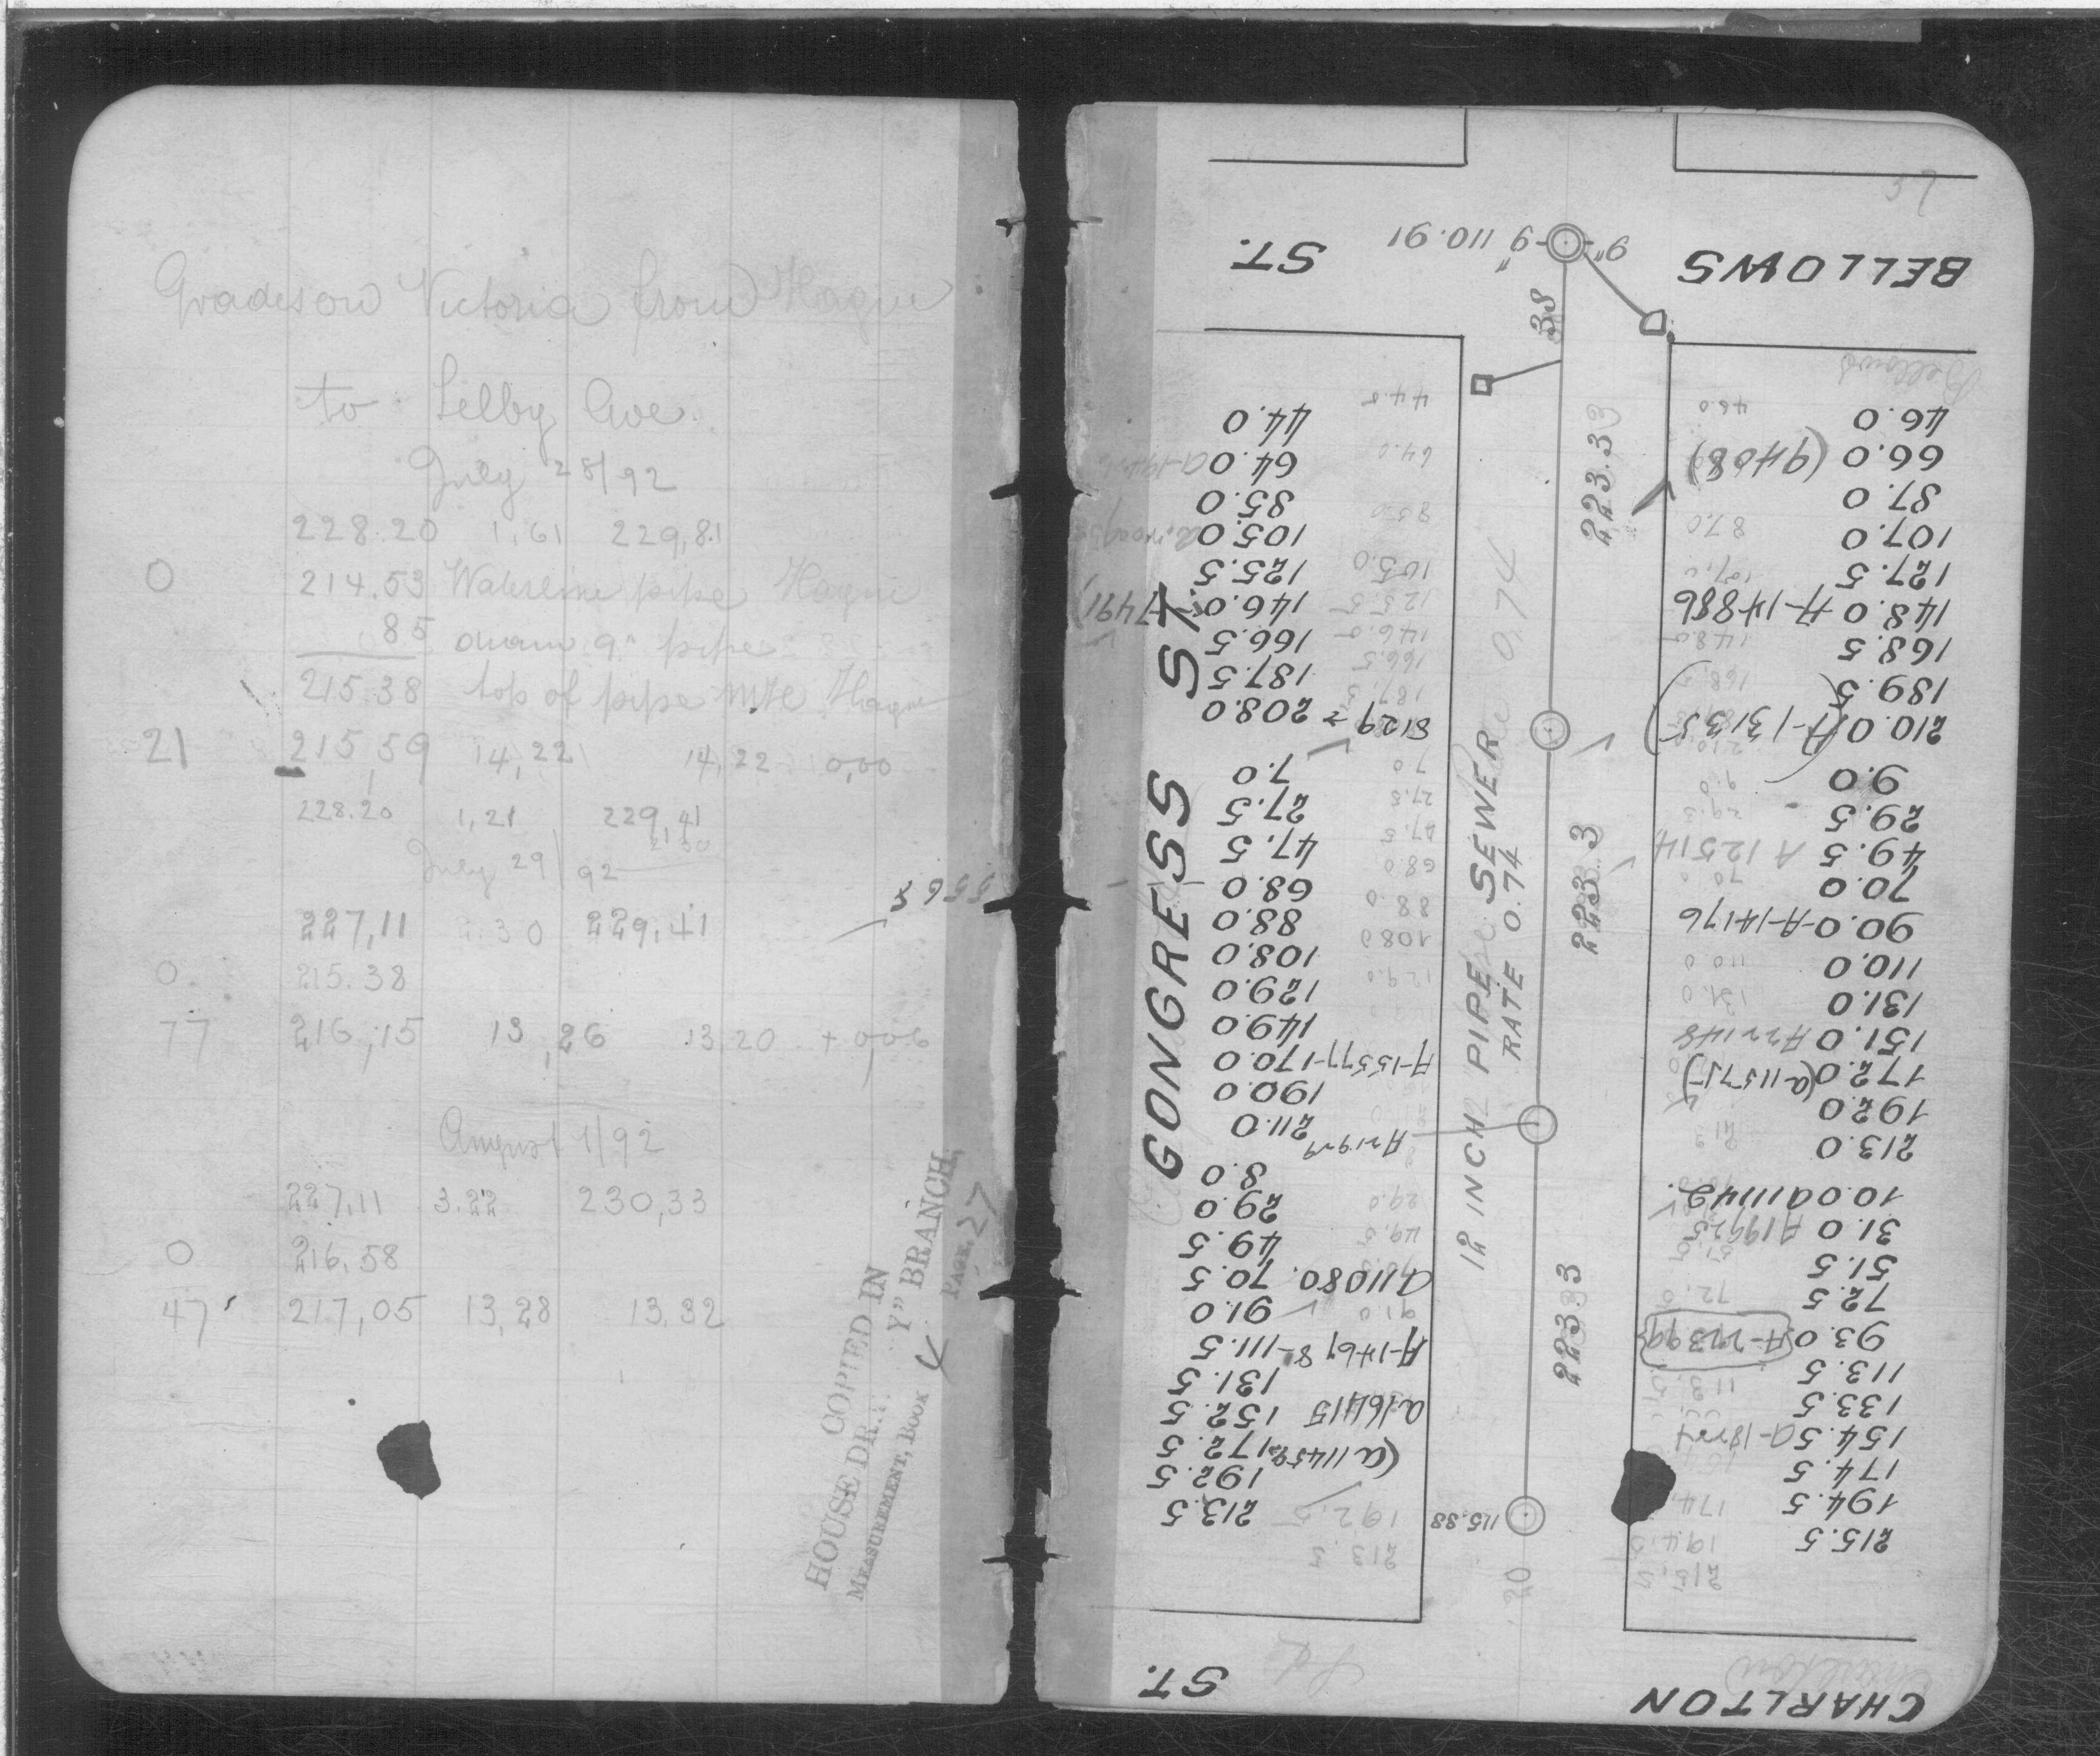 Grades on Victoria from Hague
to Selby Ave.
July 28/92
228.20 1,61 229,81
0 214.53 Waterline pipe Hague
.85 diam 9" pipe
215.38 top of pipe MHe Hague
21 215,59 14,22 14,22 0,00
228.20 1,21 229,41
2,30
July 29/92
227,11 2.30 229.41
0. 215.38
77 216,15 13,26 13.20 + 0,06
August 1/92
227,11 3.22 230,33
0 216,58
47 217,05 13,28 13,32
COPIED IN
HOUSE DR. "Y" BRANCH,
MEASUREMENT, BOOK 4 PAGE, 27
37
BELLOWS ST.
9" 9" 110.91
38
Bellows
46.0
66.0 (9408)
87.0
107.0
127.5
148.0 A-14886
168.5
189.5
210.0 (A-13135)
9.0
29.5
49.5 A 12514
70.0
90.0-A-14176
110.0
131.0
151.0 A22148
172.0 (a11575)
192.0
213.0
10.0 a11142
31.0 A19925
51.5
72.5
93.0 A-22399
113.5
133.5
154.5 a-18227
174.5
194.5
215.5
223.33
223.3
223.3
12 INCH PIPE SEWER
RATE 0.74
CONGRESS ST.
44.0
64.0
85.0
105.0
125.5
146.0 7491
166.5
187.5
8129 208.0
7.0
27.5
47.5
68.0
88.0
108.0
129.0
149.0
A-15577-170.0
190.0
211.0
A21929
8.0
29.0
49.5
a11080. 70.5
91.0
A-14678-111.5
131.5
a16415 152.5
(a11459) 172.5
192.5
213.5
115.88
20
CHARLTON ST.